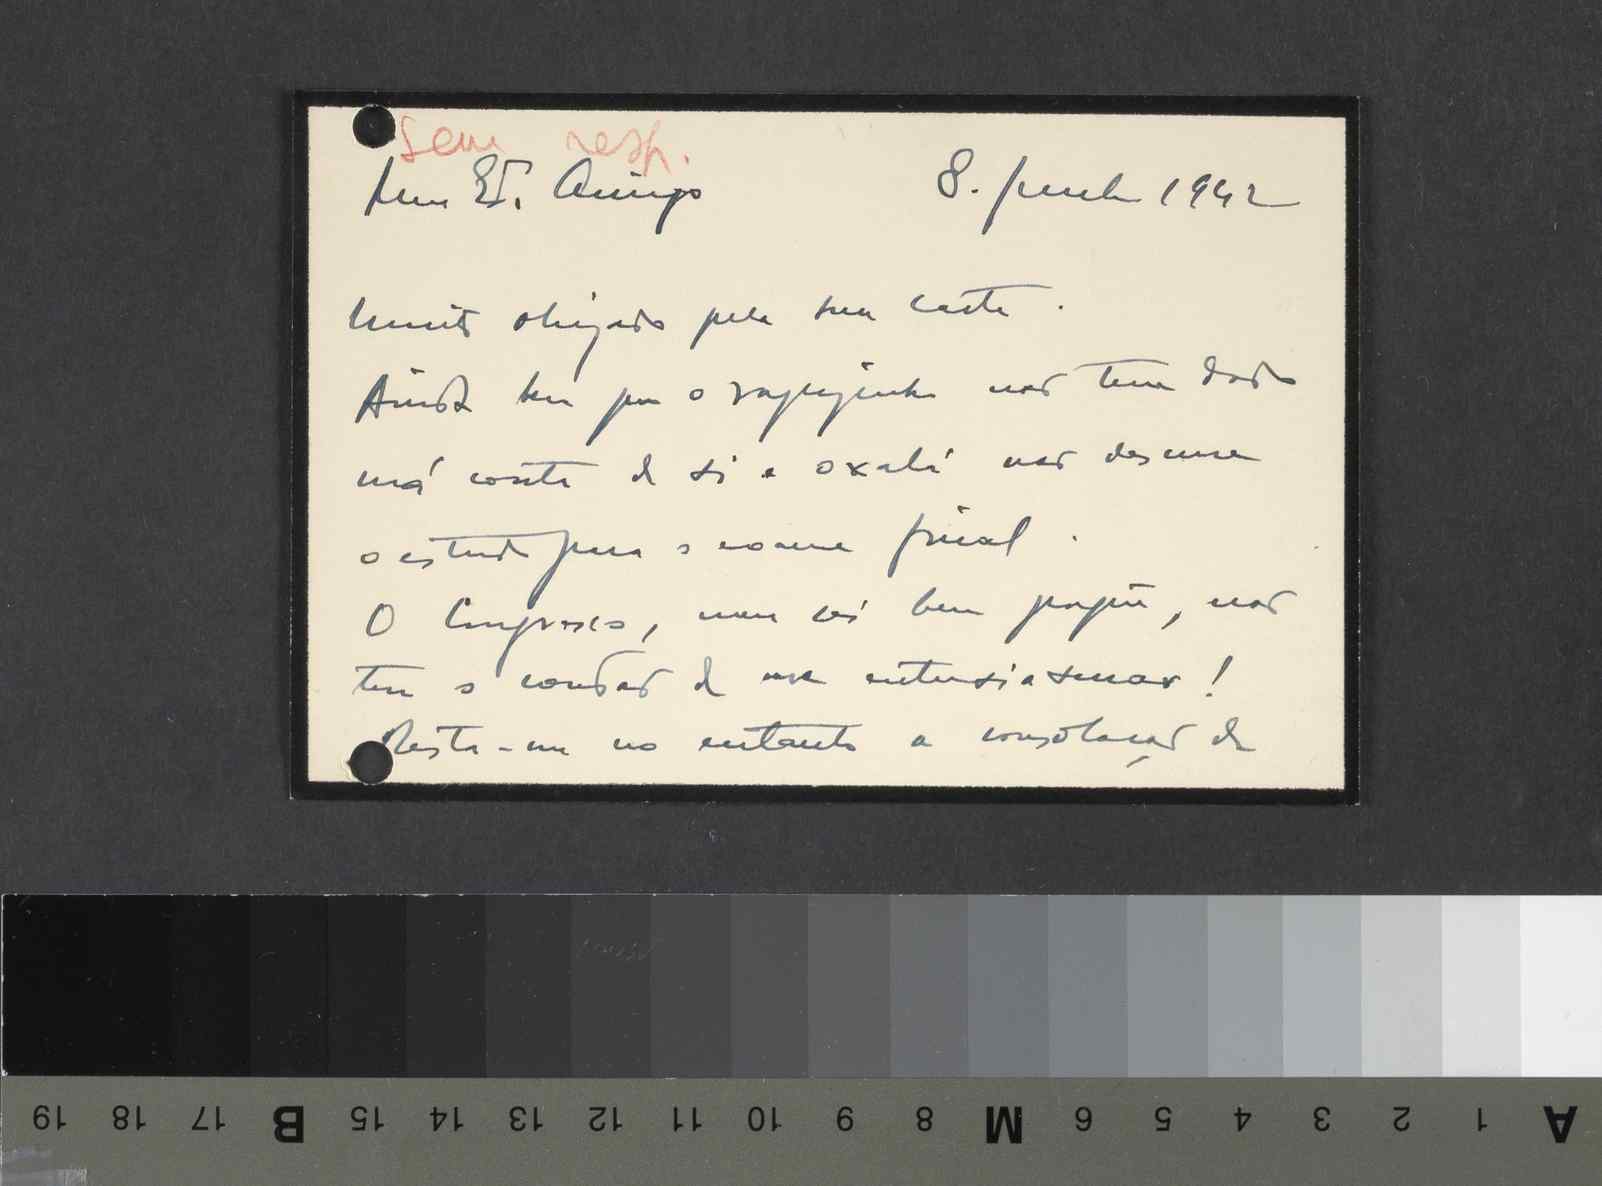 sem resp.
Meu Ex. Amigo 8. Junho 1942
Muito obrigado pela sua carta.
Ainda bem que o rapazinho não tem dado
má conta de si e oxalá não descure
o estudo para o exame final.
O Congresso, nem sei bem porquê, não
tem o condão de me entusiasmar!
Resta-me no entanto a consolação de
19 18 17 B 15 14 13 12 11 10 9 8 M 6 5 4 3 2 1 A